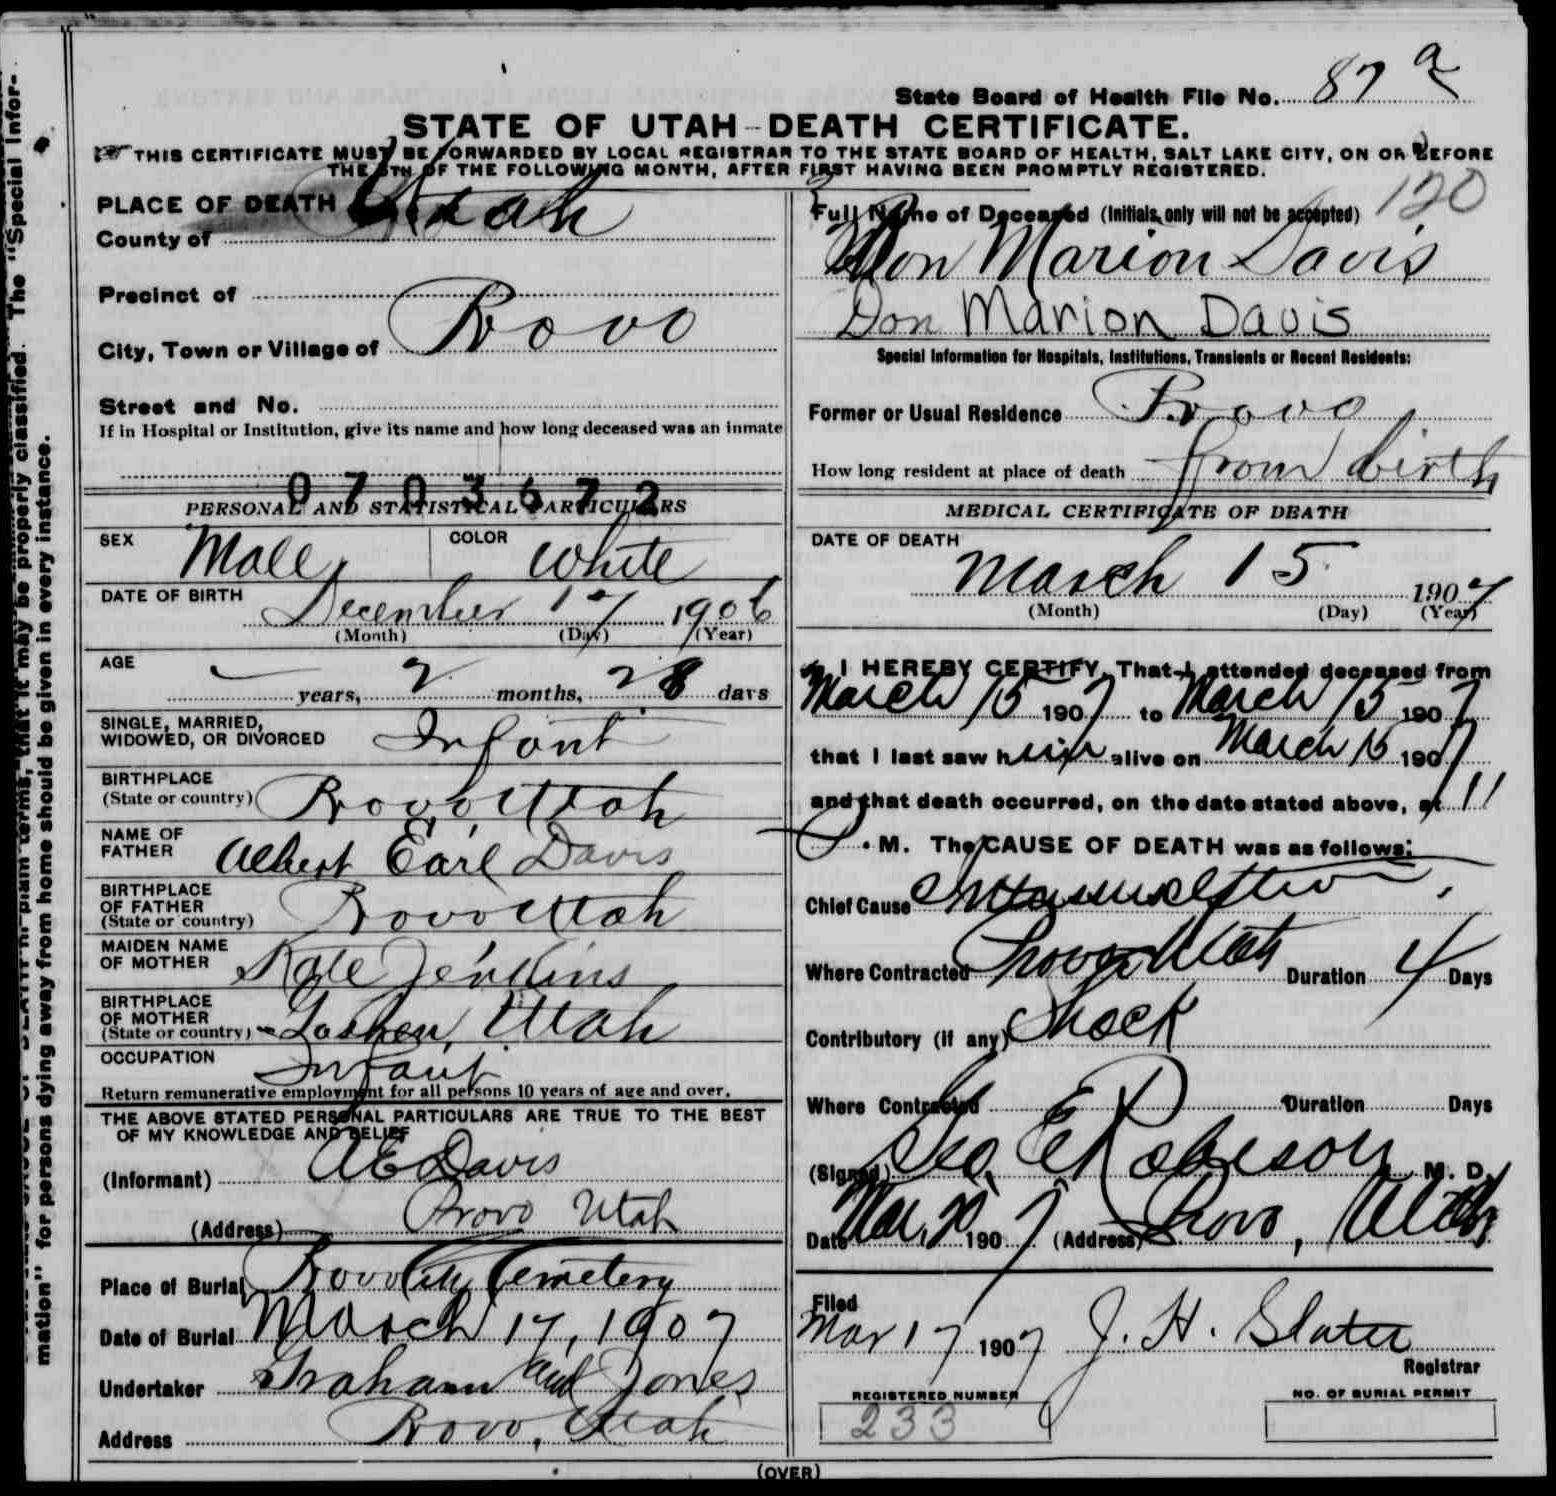 State Board of Health File No. 87 a
STATE OF UTAH - DEATH CERTIFICATE.
THIS CERTIFICATE MUST BE FORWARDED BY LOCAL REGISTRAR TO THE STATE BOARD OF HEALTH, SALT LAKE CITY, ON OR BEFORE
THE 5TH OF THE FOLLOWING MONTH, AFTER FIRST HAVING BEEN PROMPTLY REGISTERED.
120
PLACE OF DEATH
County of Utah
Precinct of
City, Town or Village of Provo
Street and No.
If in Hospital or Institution, give its name and how long deceased was an inmate
0703672
PERSONAL AND STATISTICAL PARTICULARS
SEX Male COLOR White
DATE OF BIRTH December 17 1906
(Month) (Day) (Year)
AGE years, 2 months, 28 days
SINGLE, MARRIED,
WIDOWED, OR DIVORCED Infant
BIRTHPLACE
(State or country) Provo, Utah
NAME OF
FATHER Albert Earl Davis
BIRTHPLACE
OF FATHER
(State or country) Provo Utah
MAIDEN NAME
OF MOTHER Kate Jenkins
BIRTHPLACE
OF MOTHER
(State or country) Goshen, Utah
OCCUPATION Infant
Return remunerative employment for all persons 10 years of age and over.
THE ABOVE STATED PERSONAL PARTICULARS ARE TRUE TO THE BEST
OF MY KNOWLEDGE AND BELIEF
(Informant) A E Davis
(Address) Provo Utah
Place of Burial Provo City Cemetery
Date of Burial March 17, 1907
Undertaker Graham and Jones
Address Provo, Utah
Full Name of Deceased (Initials only will not be accepted)
Don Marion Davis
Don Marion Davis
Special Information for Hospitals, Institutions, Transients or Recent Residents:
Former or Usual Residence Provo
How long resident at place of death from birth
MEDICAL CERTIFICATE OF DEATH
DATE OF DEATH
March 15 1907
(Month) (Day) (Year)
I HEREBY CERTIFY, That I attended deceased from
March 15 1907 to March 15 1907
that I last saw him alive on March 15 1907
and that death occurred, on the date stated above, at 11
P. M. The CAUSE OF DEATH was as follows:
Chief Cause Intussusception
Where Contracted Provo Utah Duration 4 Days
Contributory (if any) Shock
Where Contracted Duration Days
(Signed) Geo E Robison M. D.
Date Mar, 20 1907 (Address) Provo, Utah
Filed
Mar 17 1907 J. H. Slater
Registrar
REGISTERED NUMBER
233
NO. OF BURIAL PERMIT
(OVER)
mation" for persons dying away from home should be given in every instance.